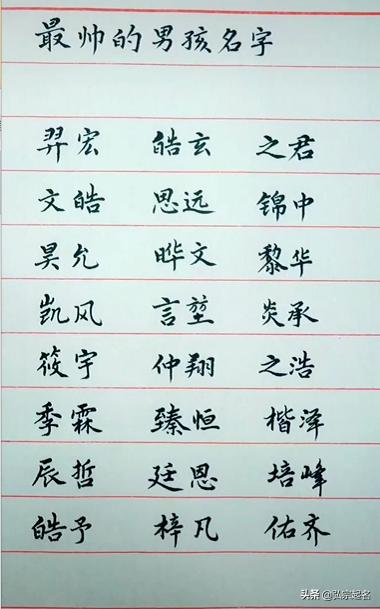 最帅的男孩名字
羿宏 皓玄 之君
文皓 思远 锦中
昊允 晔文 黎华
凯风 言堃 炎承
筱宇 仲翔 之浩
季霖 臻恒 楷泽
辰哲 廷恩 培峰
皓予 梓凡 佑齐
头条 @弘宗起名